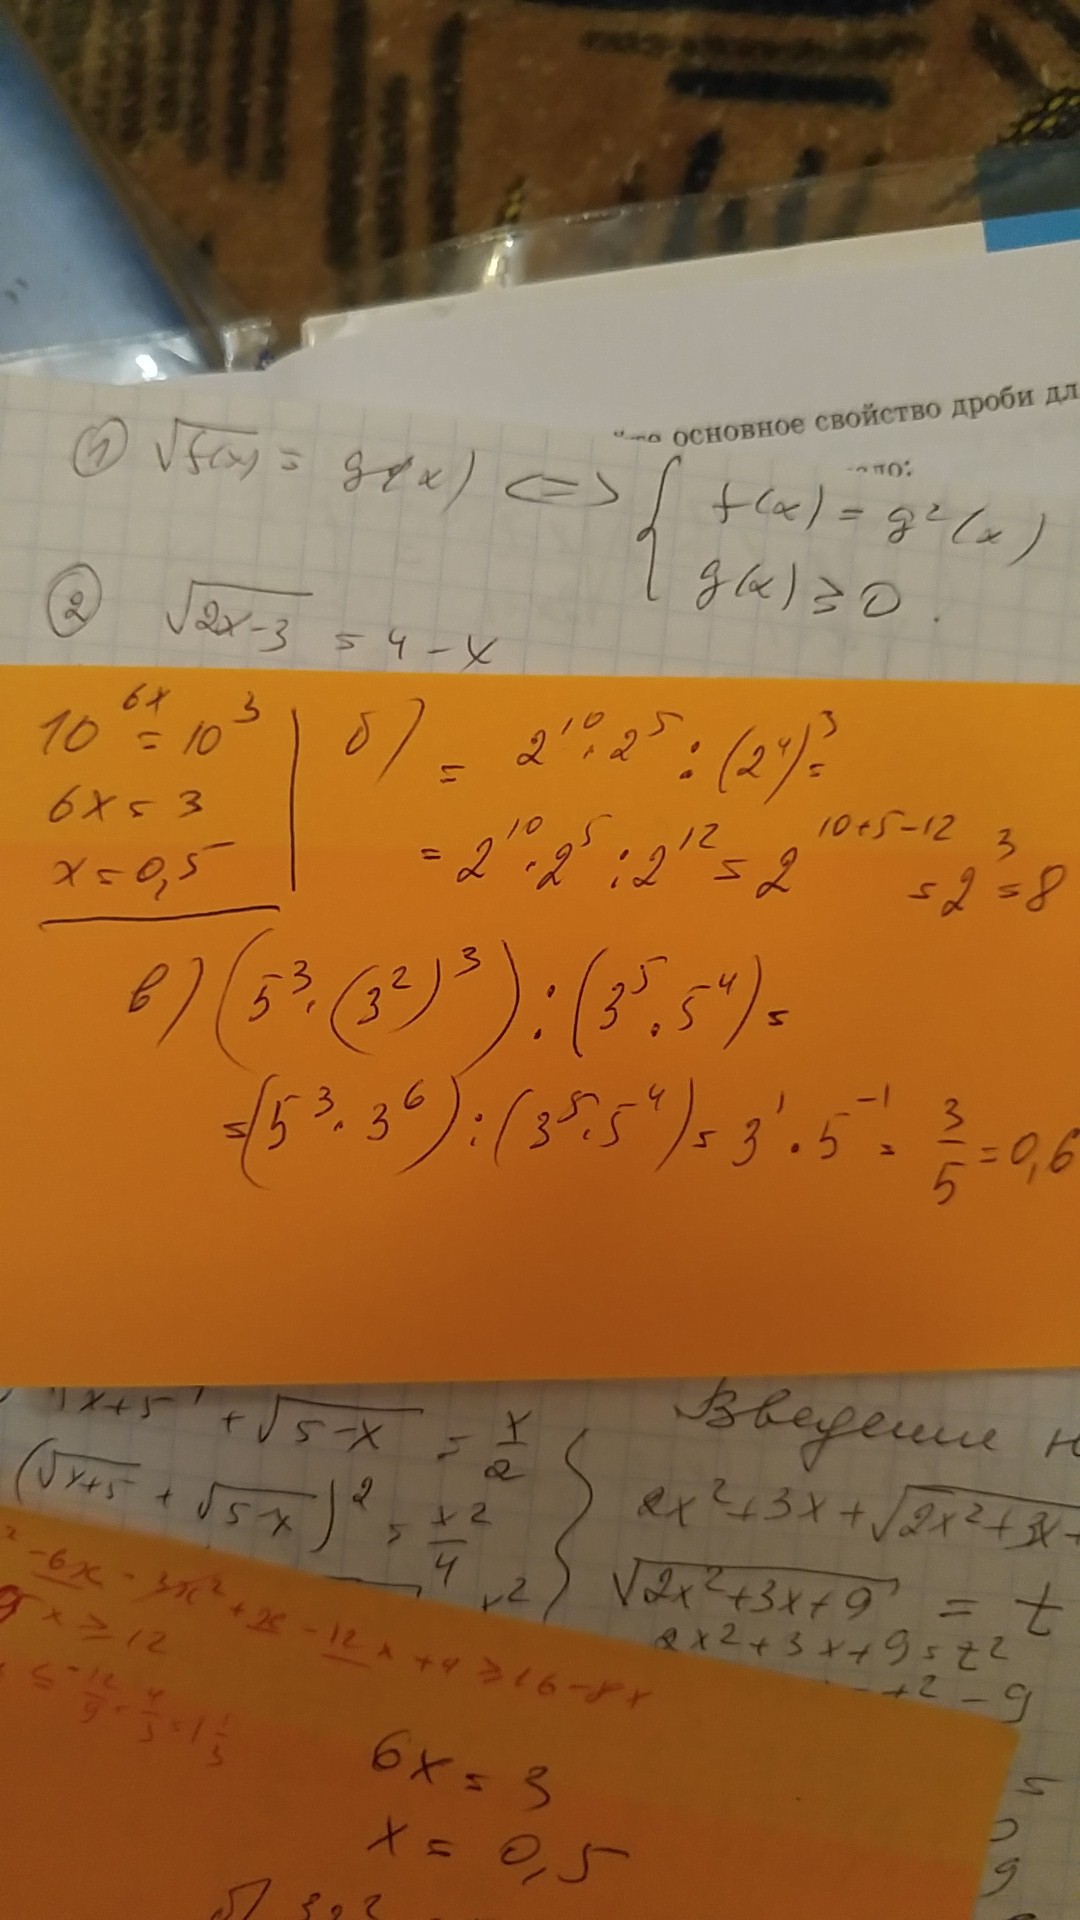 основное свойство дроби дл
① √f(x) = g(x) <=> { f(x) = g²(x)
g(x) ≥ 0.
② √2x-3 = 4-x
10^6x = 10^3
6x = 3
x = 0,5
б) = 2^10 · 2^5 : (2^4)^3 =
= 2^10 · 2^5 : 2^12 = 2^10+5-12 = 2^3 = 8
в) (5^3 · (3^2)^3) : (3^5 · 5^4) =
= (5^3 · 3^6) : (3^5 · 5^4) = 3^1 · 5^-1 = 3/5 = 0,6
x+5 + √5-x = x/2
(√x+5 + √5-x)^2 = x^2/4
x^2
Введение н
2x^2+3x+√2x^2+3x+
√2x^2+3x+9 = t
2x^2+3x+9 = t^2
t^2-9
-6x - 3x^2 + x - 12x + 4 ≥ 16-8x
x ≥ 12
12/9 = 4/3 = 1 1/3
6x = 3
x = 0,5
б)